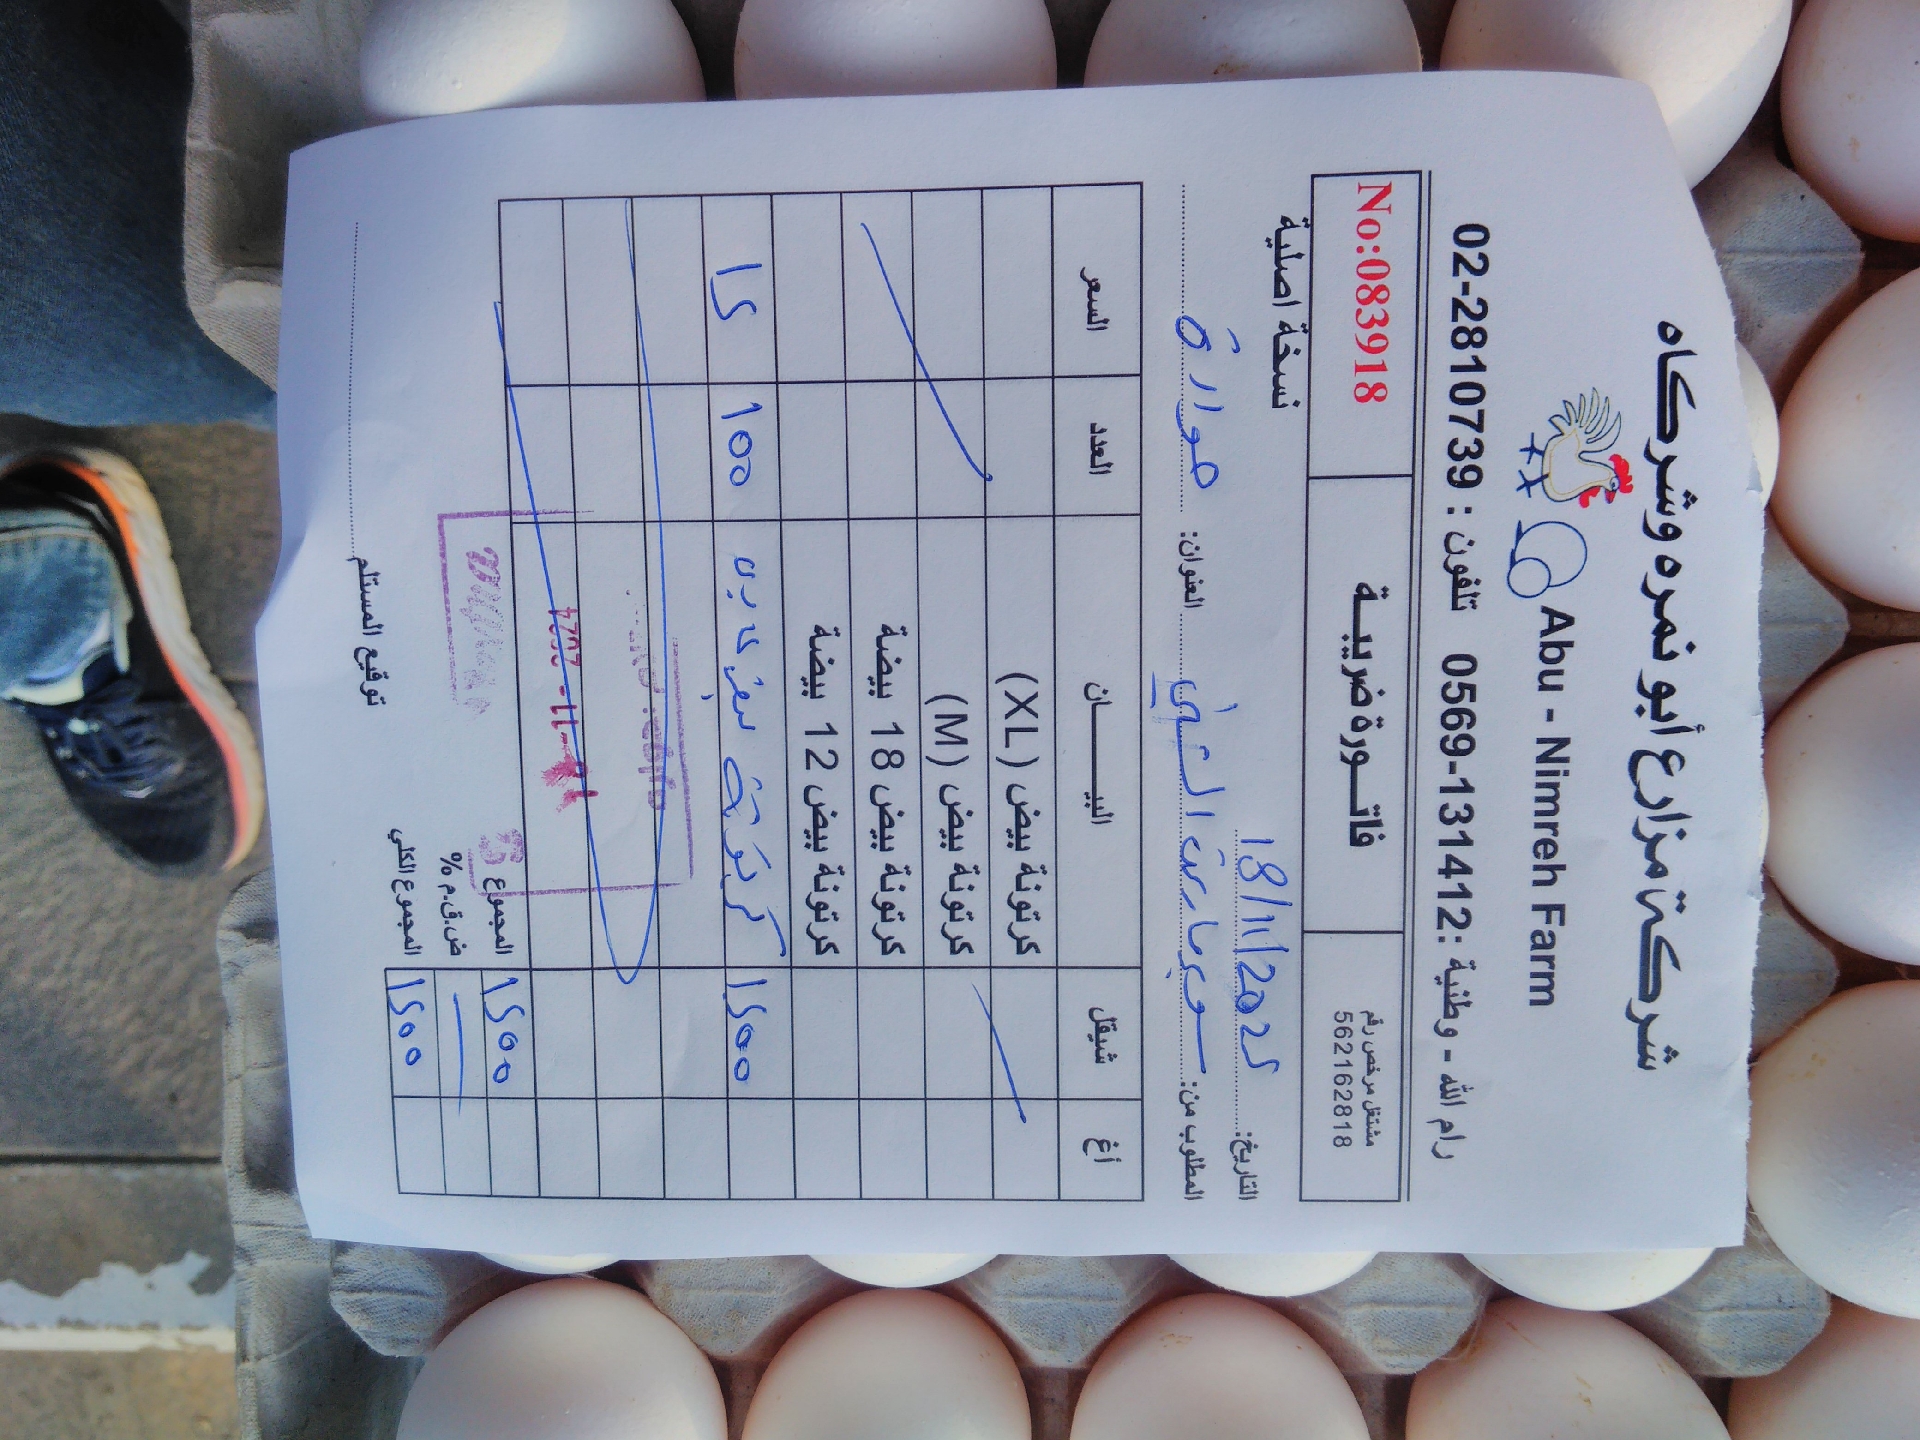 شركة مزارع أبو نمره وشركاه
Abu - Nimreh Farm
رام الله - وطنية :0569-131412 تلفون : 02-2810739
مشتغل مرخص رقم
562162818
فاتـورة ضريبـة
No:083918
نسخة اصلية
التاريخ: 18/11/2025
المطلوب من: سوبرماركت العنوان: حوارة
أغ شيقل البيـــــان العدد السعر
كرتونة بيض (XL)
كرتونة بيض (M)
كرتونة بيض 18 بيضة
كرتونة بيض 12 بيضة
1500 كرتونة بيض 100 15
-11-2024
1500 المجموع
ض.ق.م %
1500 المجموع الكلي
توقيع المستلم